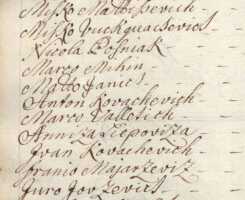 Misko Mattossevich
Misko Vuckquacsovics
Nicola Posniak
Marco Mihin
Matto Janics
Anton Kovachevich
Marco Valletich
Anniza Lepoviza
Ivan Kovachevich
Franio Majarzeviz
Juro Jovzevics